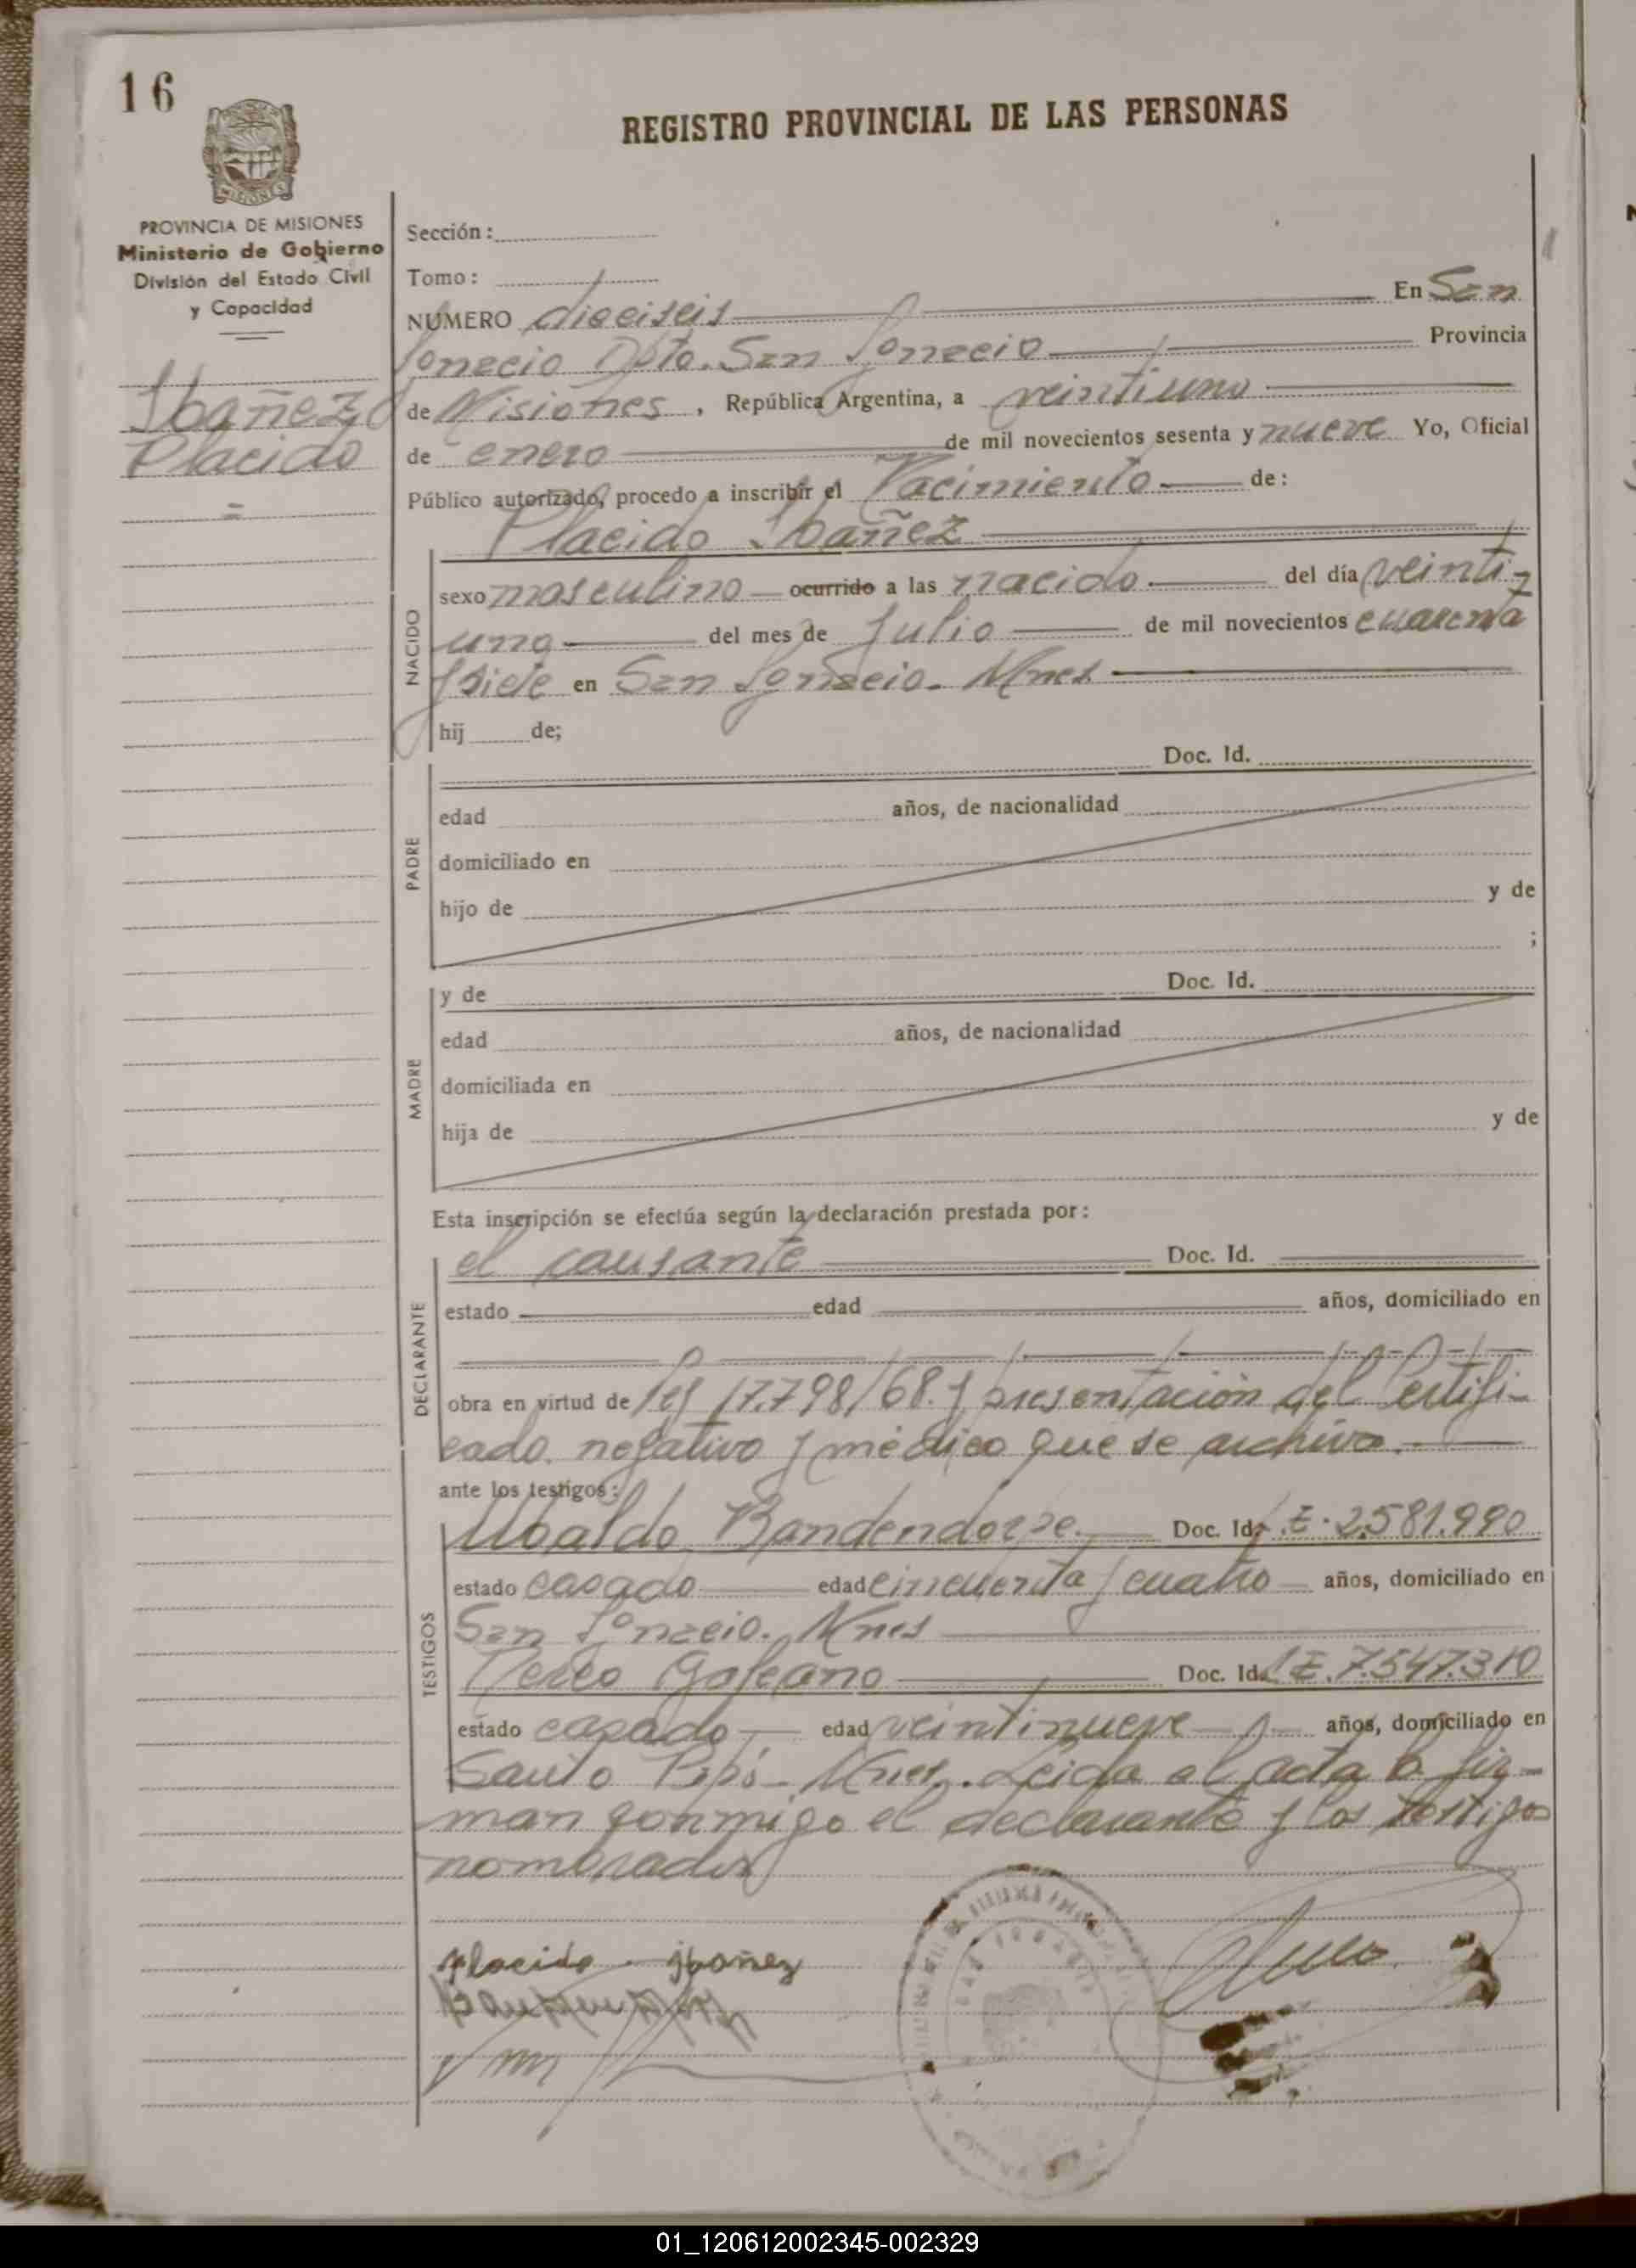 16
REGISTRO PROVINCIAL DE LAS PERSONAS
MISIONES
PROVINCIA DE MISIONES
Ministerio de Gobierno
División del Estado Civil
y Capacidad
Ibañez
Placido
=
Sección:
Tomo:
NÚMERO dieciseis En San
Ignacio Dpto. San Ignacio Provincia
de Misiones, República Argentina, a veintiuno
de enero de mil novecientos sesenta y nueve Yo, Oficial
Público autorizado, procedo a inscribir el Nacimiento de:
Placido Ibañez
NACIDO
sexo masculino ocurrido a las nacido del día veinti-
uno del mes de Julio de mil novecientos cuarenta
y siete en San Ignacio. Mnes
hij de;
PADRE
Doc. Id.
edad años, de nacionalidad
domiciliado en
hijo de y de
;
MADRE
y de Doc. Id.
edad años, de nacionalidad
domiciliada en
hija de y de
Esta inscripción se efectúa según la declaración prestada por:
DECLARANTE
el causante Doc. Id.
estado edad años, domiciliado en
obra en virtud de ley 17.798/68. y presentación del Certifi-
cado negativo y médico que se archiva.-
ante los testigos:
TESTIGOS
Ubaldo Bandendorpe. Doc. Id. L.E. 2.581.990
estado casado edad cincuenta y cuatro años, domiciliado en
San Ignacio. Mnes
Galeano Doc. Id. L.E. 7.547.310
estado casado edad veintinueve años, domiciliado en
Santo Pipó- Mnes. Leida el acta la fir-
man conmigo el declarante y los testigos
nombrados
placido ibañez
01_120612002345-002329